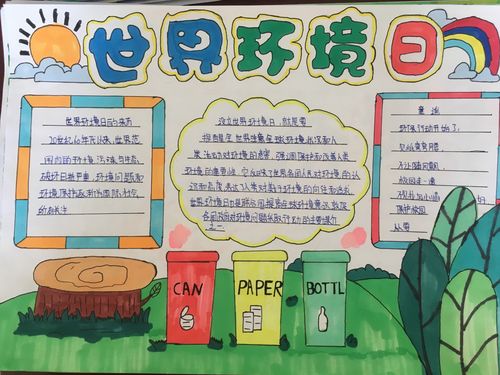 世界环境日
世界环境日的来历
20世纪60年代以来,世界范
围内的环境污染与生态
破坏日益严重,环境问题和
环境保护逐渐为国际社会
的关注
设立世界环境日,就是要
提醒全世界注意全球环境状况和人
类活动对环境的危害,强调保护和改善人类
环境的重要性。它反映了世界各国人民对环境的认
识和态度,表达了人类对美好环境的向往和追求
世界环境日也是联合国提高全球环境意识,敦促
各国政府对环境问题采取行动的主要媒介
之一
童谣
环保行动开始了,
保护校园
CAN
PAPER
BOTTL